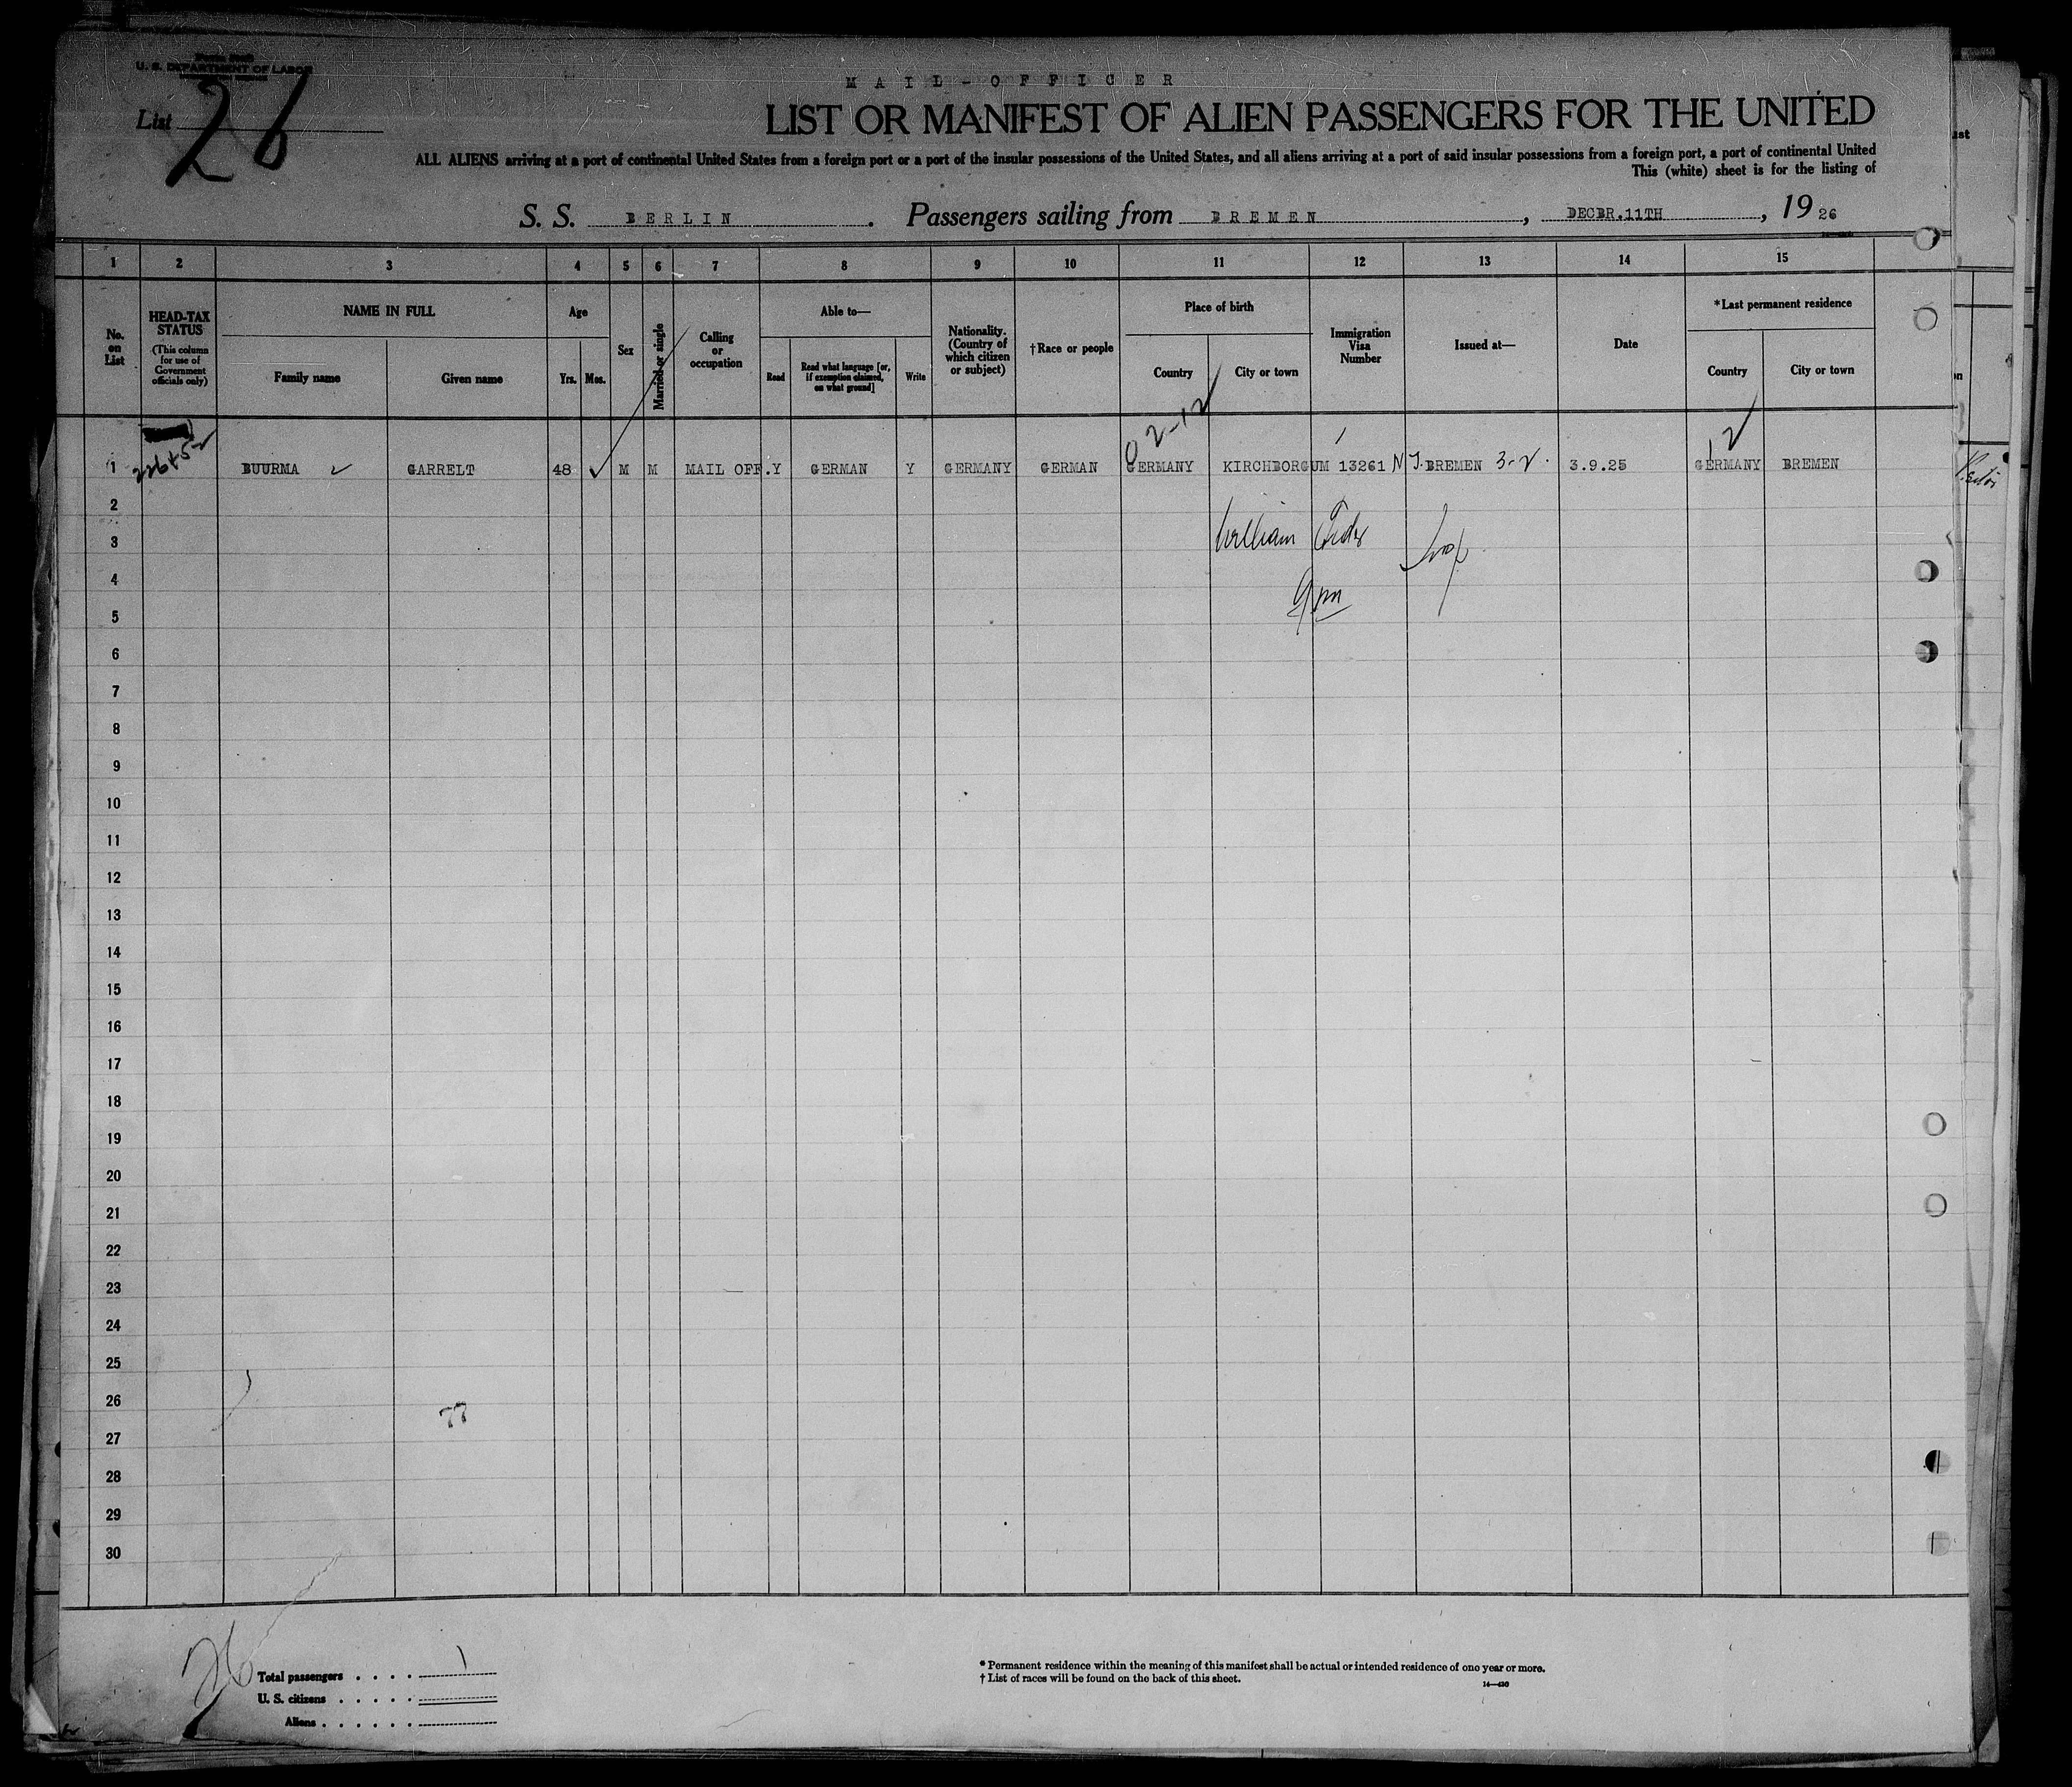 U. S. DEPARTMENT OF LABOR
MAIL-OFFICER
List 26
LIST OR MANIFEST OF ALIEN PASSENGERS FOR THE UNITED
ALL ALIENS arriving at a port of continental United States from a foreign port or a port of the insular possessions of the United States, and all aliens arriving at a port of said insular possessions from a foreign port, a port of continental United
This (white) sheet is for the listing of
S. S. BERLIN. Passengers sailing from BREMEN, DECBR.11TH, 1926
1 2 3 4 5 6 7 8 9 10 11 12 13 14 15
No. on List
HEAD-TAX STATUS
(This column for use of Government officials only)
NAME IN FULL
Family name
Given name
Age
Yrs. Mos.
Sex
Married or single
Calling or occupation
Able to—
Read
Read what language [or, if exemption claimed, on what ground]
Write
Nationality. (Country of which citizen or subject)
†Race or people
Place of birth
Country
City or town
Immigration Visa Number
Issued at—
Date
*Last permanent residence
Country
City or town
02-12
12
1 BUURMA GARRELT 48 M M MAIL OFF. Y GERMAN Y GERMANY GERMAN GERMANY KIRCHBORGUM 13261 BREMEN 3-2 3.9.25 GERMANY BREMEN
2
William
3
4
5
6
7
8
9
10
11
12
13
14
15
16
17
18
19
20
21
22
23
24
25
26
77
27
28
29
30
26
Total passengers . . . . 1
U. S. citizens . . . . .
Aliens . . . . . .
* Permanent residence within the meaning of this manifest shall be actual or intended residence of one year or more.
† List of races will be found on the back of this sheet.